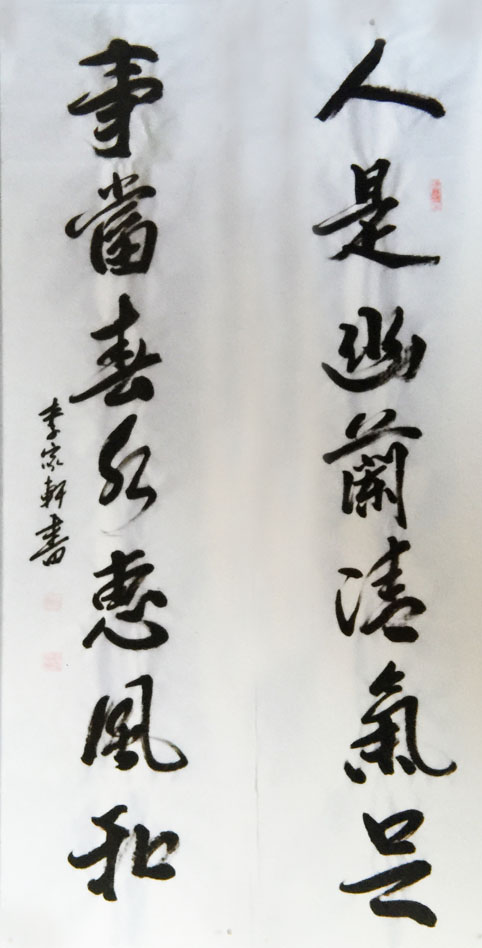 人是幽蘭清氣足
事當春水惠風和
李家軒書